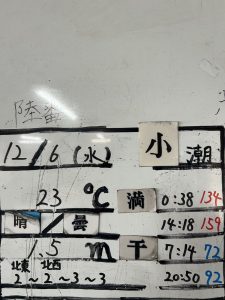 陸番
12/6(水) 小潮
23℃ 満 0:38 134
晴/曇 14:18 159
1.5m 干 7:14 72
北東 北西
2~2~3~3 20:50 92